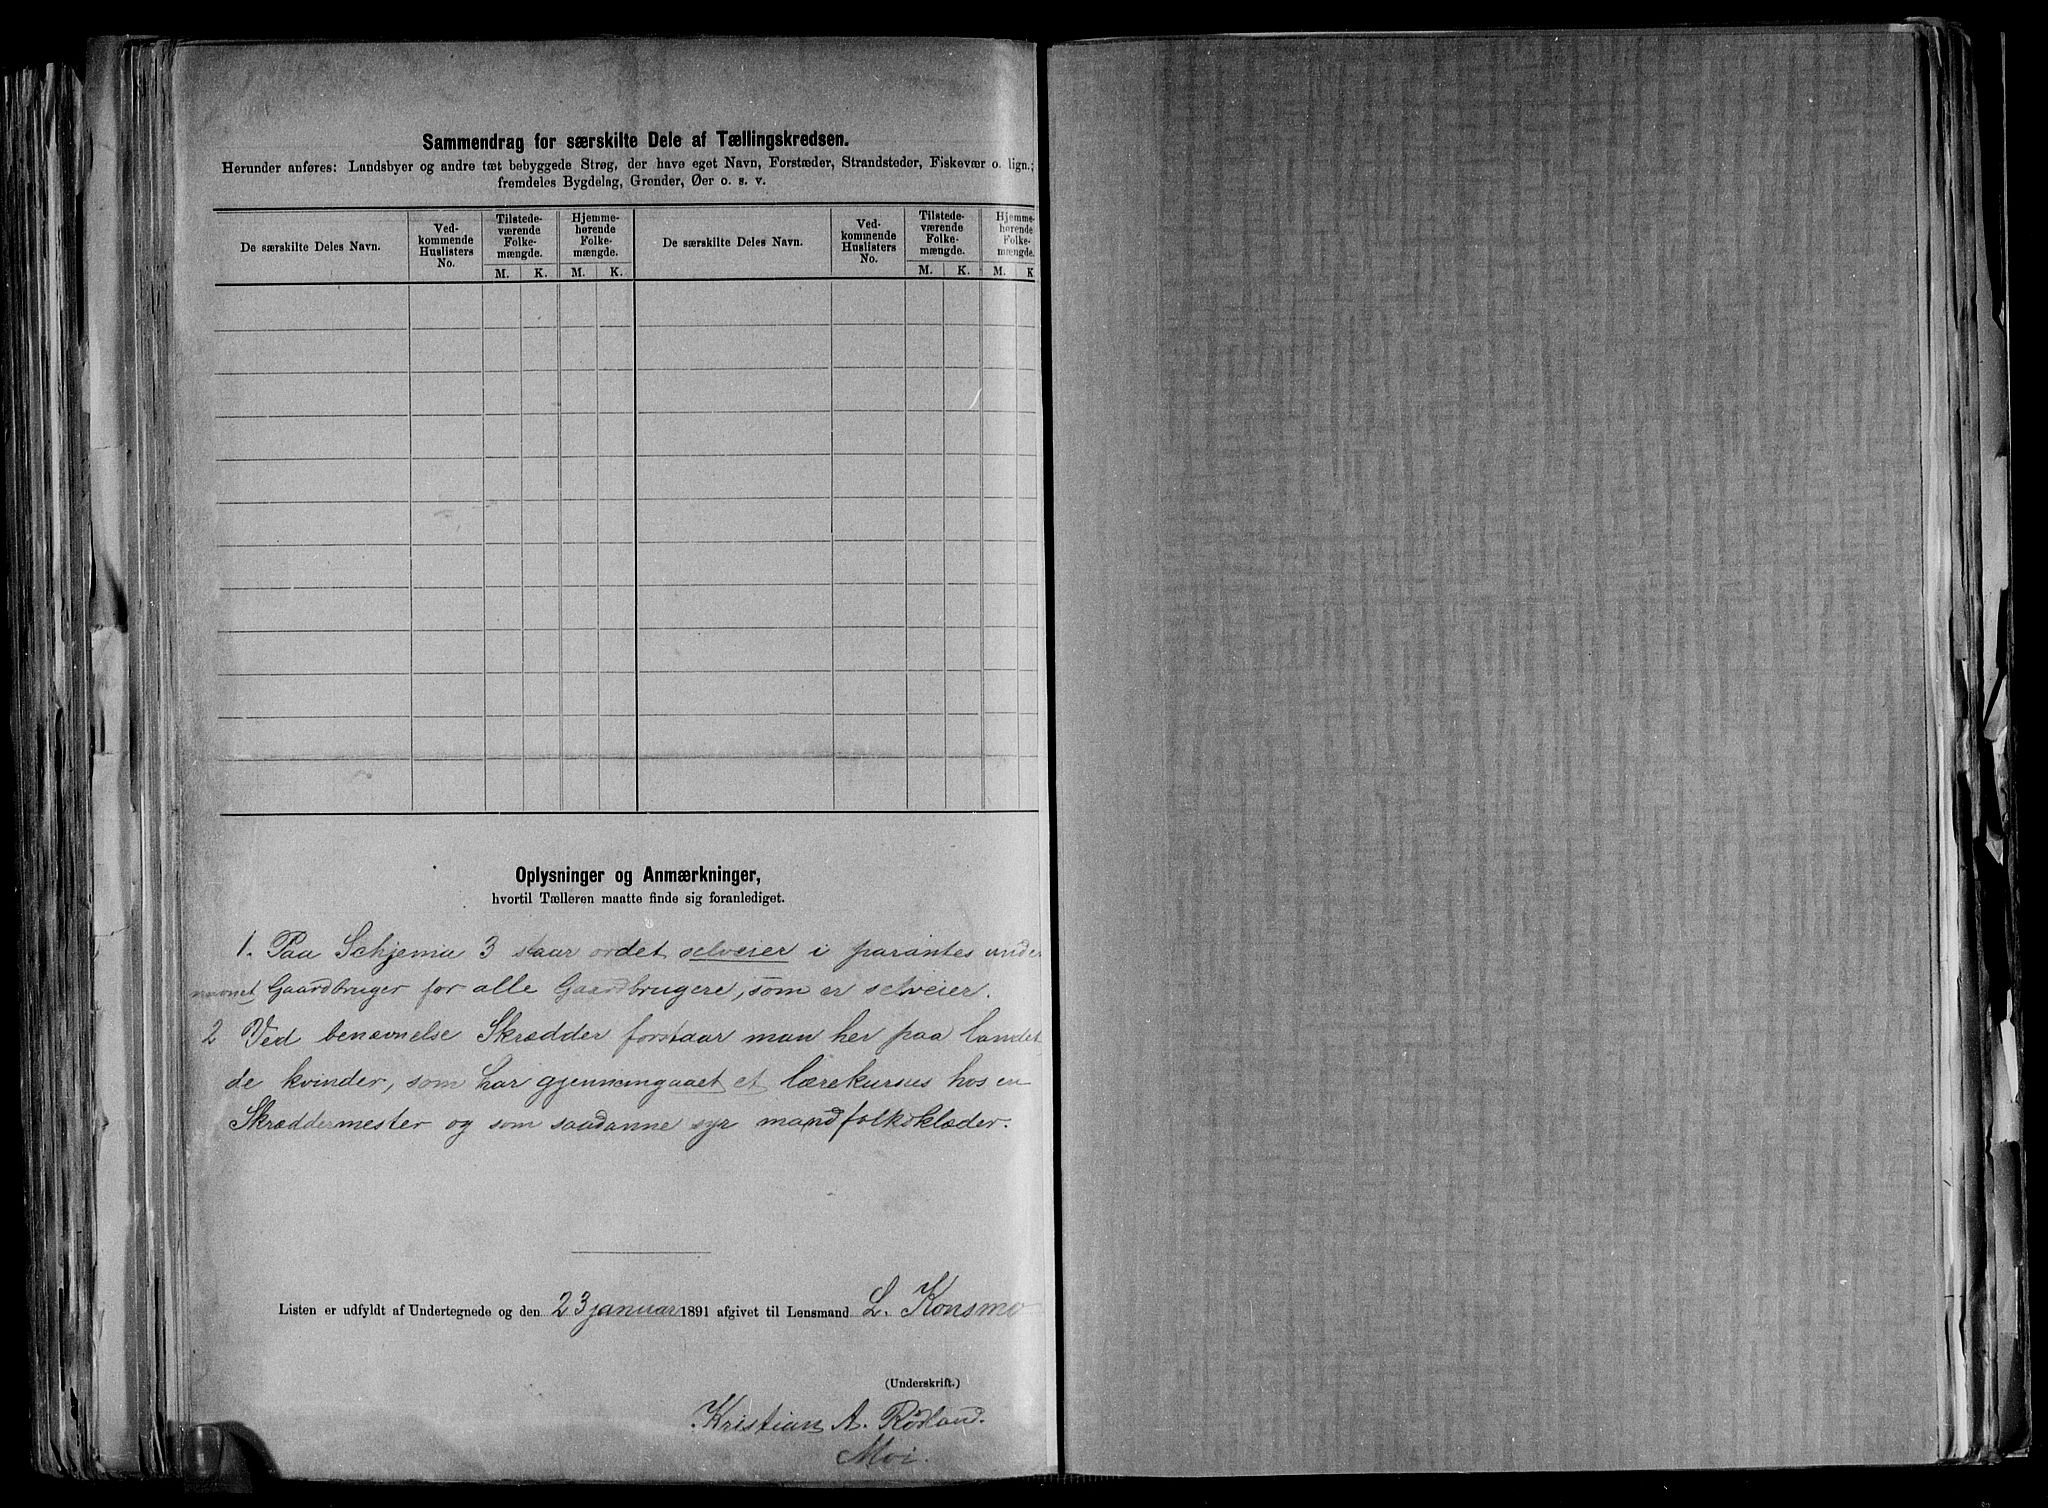 Sammendrag for særskilte Dele af Tællingskredsen.
Herunder anføres: Landsbyer og andre tæt bebyggede Strøg, der have eget Navn, Forstæder, Strandsteder, Fiskevær o. lign.;
fremdeles Bygdelag, Grender, Øer o. s. v.
De særskilte Deles Navn.
Ved-
kommende
Huslisters
No.
Tilstede-
værende
Folke-
mængde.
M. K.
Hjemme-
hørende
Folke-
mængde.
M. K.
De særskilte Deles Navn.
Ved-
kommende
Huslisters
No.
Tilstede-
værende
Folke-
mængde.
M. K.
Hjemme-
hørende
Folke-
mængde.
M. K
Oplysninger og Anmærkninger,
hvortil Tælleren maatte finde sig foranlediget.
1. Paa Schjema 3 staar ordet selveier i parantes under
navnet Gaardbruger for alle Gaardbrugere, som er selveier.
2 Ved benævnelse Skrædder forstaar man her paa landet,
de kvinder, som har gjennemgaaet et lærekursus hos en
Skræddermester og som saadanne syr mandfolksklæder.
Listen er udfyldt af Undertegnede og den 23 januar 1891 afgivet til Lensmand L. Konsmo
(Underskrift.)
Kristian A. Rødland.
Moi.